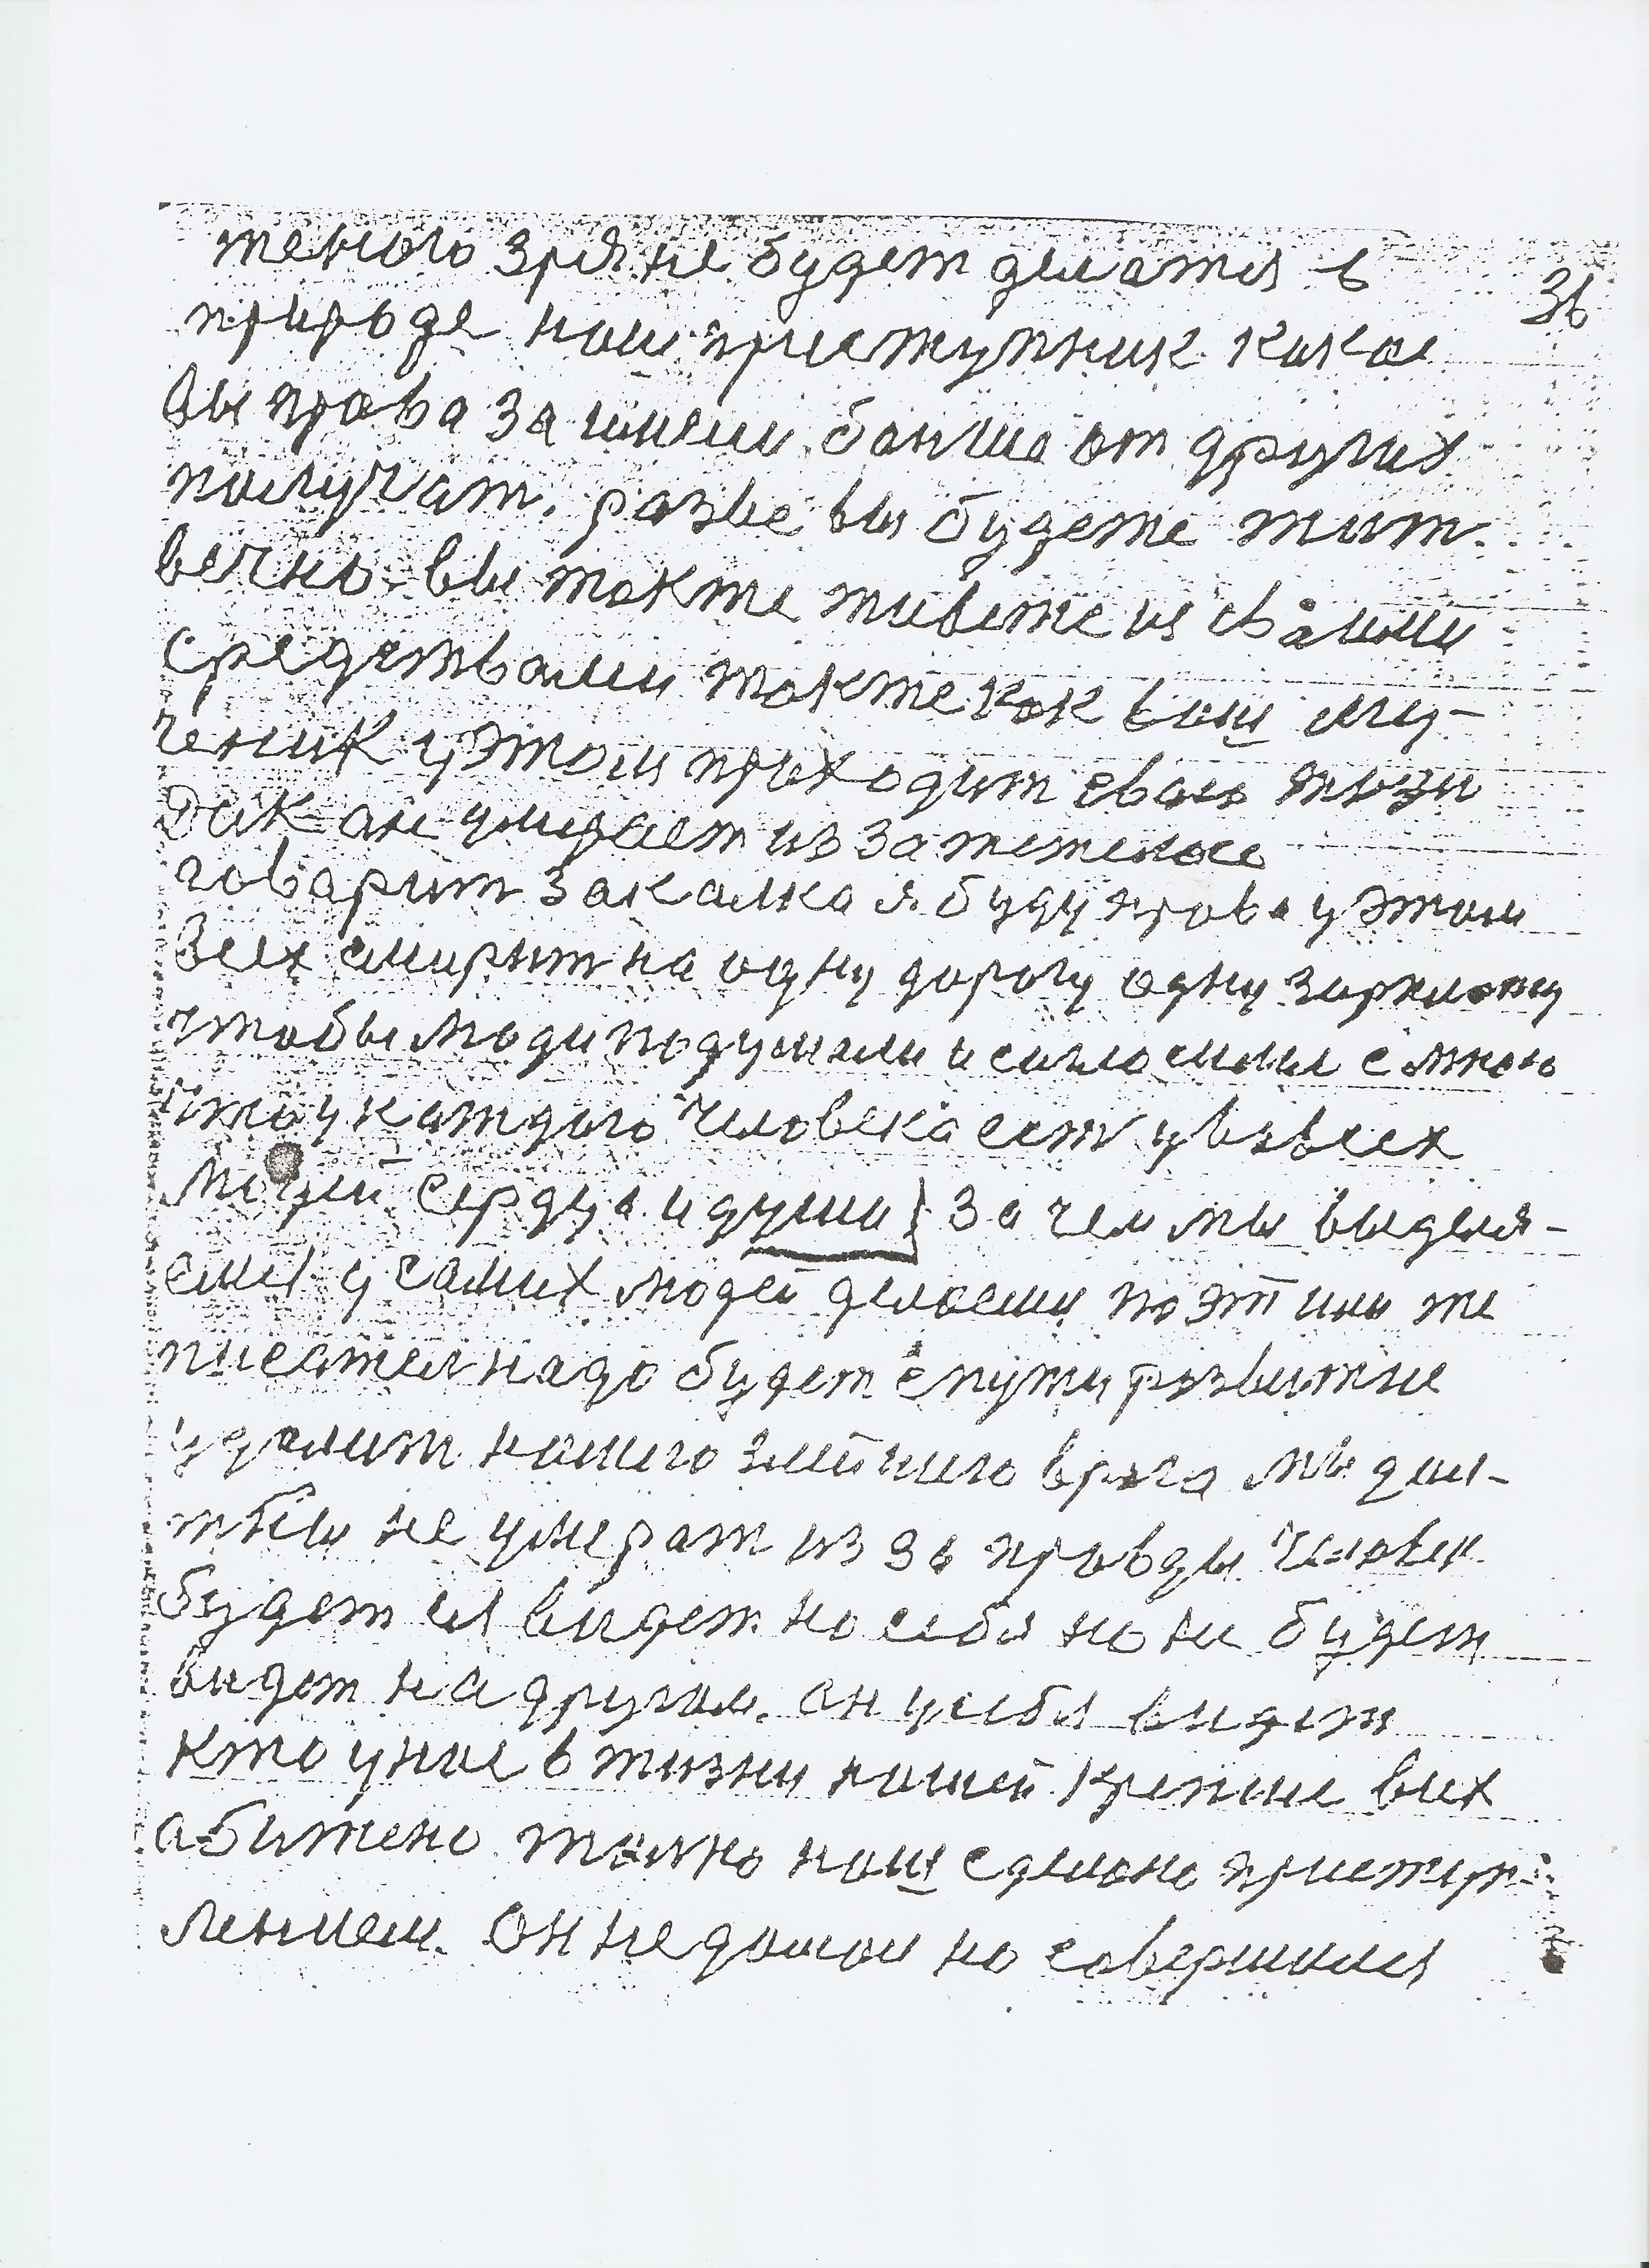 телого зря не будет делатся в
36
природе наш приступник какое
вы права за имели болша от других
получат. разве вы будете жит
вечно. вы также живете и сваими
средствами также как ваш му-
ченик у этом приходит своею жизни
Дак он умирает из за тежелого
говарит закалка я буду права у этом
Всех смирит на одну дорогу одну
чтобы люди подумали и согласились с мною
што у каждого человека ест у во всех
людей сердца и души} За чем мы выделя-
емся у самих людей делаему по эт или же
писател надо будет с пути развитие
удалит нашего злейшего врага мы
не умерат из за правды. Человек
будет ся видет на себя но не будет
видет на другом. он у себя видит
кто у нас в жизни нашей крепше всех
абижено. толко наш сделано приступ-
лением. Он не домой но совершился